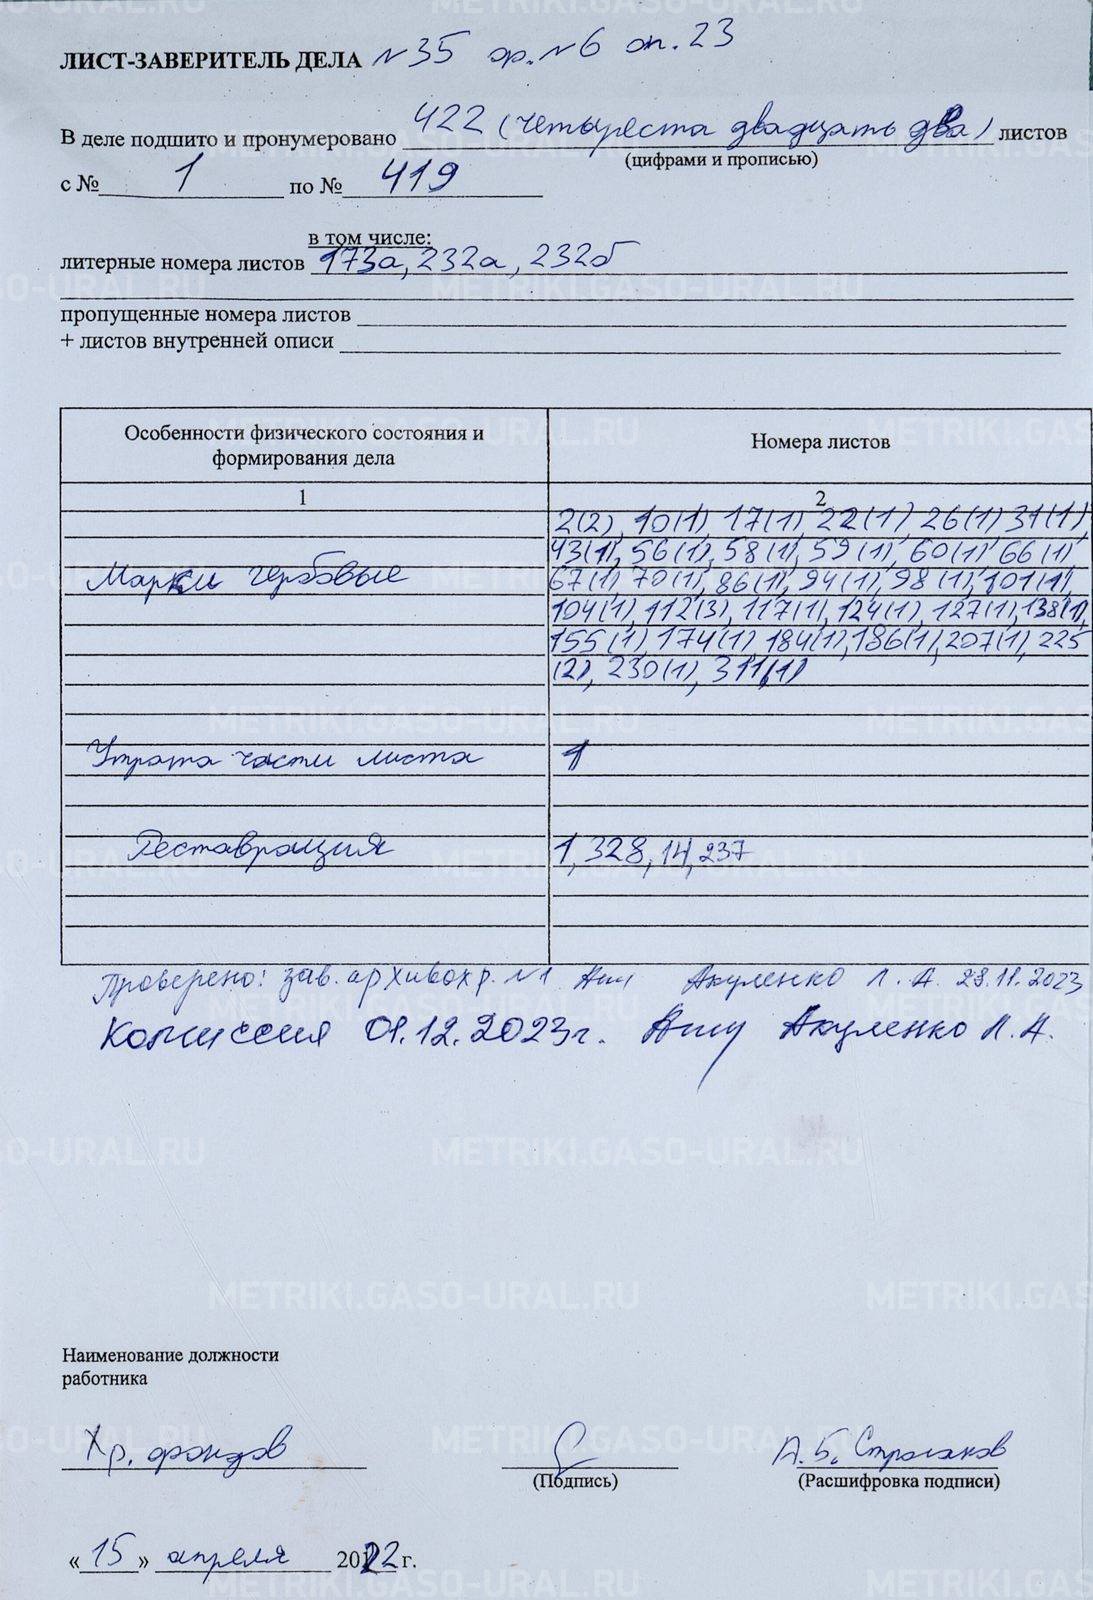 ЛИСТ-ЗАВЕРИТЕЛЬ ДЕЛА №35 ф.№6 оп.23
В деле подшито и пронумеровано 422 (четыреста двадцать два) листов
(цифрами и прописью)
с № 1 по № 419
в том числе:
литерные номера листов 173а, 232а, 232б
пропущенные номера листов
+ листов внутренней описи
Особенности физического состояния и формирования дела
Номера листов
1
2
2(2), 10(1), 17(1), 22(1), 26(1) 31(1),
43(1), 56(1), 58(1), 59(1), 60(1), 66(1)
Марки гербовые
67(1), 70(1), 86(1), 94(1), 98(1), 101(1),
104(1), 112(3), 117(1), 124(1), 127(1), 138(1),
155(1), 174(1), 184(1), 186(1), 207(1), 225
(2), 230(1), 311(1)
Утрата части листа 1
Реставрация 1, 328, 14, 237
Проверено: зав. архивохр. №1 Акуленко Л. А. 28.11.2023
Комиссия 01.12.2023г. Акуленко Л.А.
Наименование должности
работника
Хр. фондов А.Б. Строганов
(Подпись) (Расшифровка подписи)
«15» апреля 2022 г.
METRIKI.GASO-URAL.RU